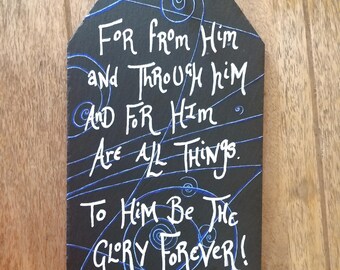 FOR fRom HIM
aND THROUGH hIM
AND FOR HIM
ARE ALL THINGS.
TO HIM BE THE
GLORY FOREVER!